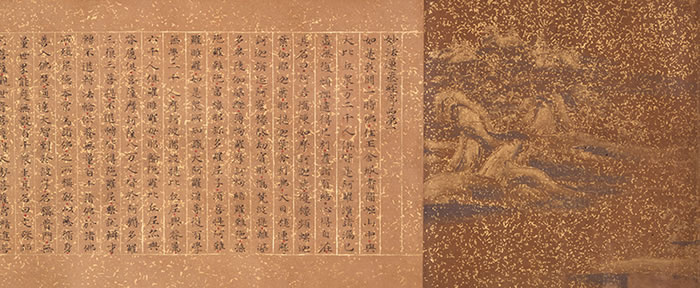 妙法蓮華經序品第一
如是我聞一時佛住王舍城耆闍崛山中與
大比丘眾万二千人俱皆是阿羅漢諸漏已
盡無復煩惱逮得己利盡諸有結心得自在
其名曰阿若憍陳如摩訶迦葉優樓頻螺迦
葉伽耶迦葉那提迦葉舍利弗大目揵連摩
訶迦旃延阿㝹樓馱劫賓那憍梵波提離婆
多畢陵伽婆蹉薄拘羅摩訶拘絺羅難陀孫
陀羅難陀富樓那彌多羅尼子須菩提阿難
羅睺羅如是眾所知識大阿羅漢等復有學
無學二千人摩訶波闍波提比丘尼與眷屬
六千人俱羅睺羅母耶輸陀羅比丘尼亦與
眷屬俱菩薩摩訶薩八万人皆於阿耨多羅
三藐三菩提不退轉皆得陀羅尼樂說辯才
轉不退轉法輪供養無量百千諸佛於諸佛
所殖眾德本常為諸佛之所稱歎以慈修身
善入佛慧通達大智到於彼岸名稱普聞無
量世界能度無數百千眾生其名曰文殊師